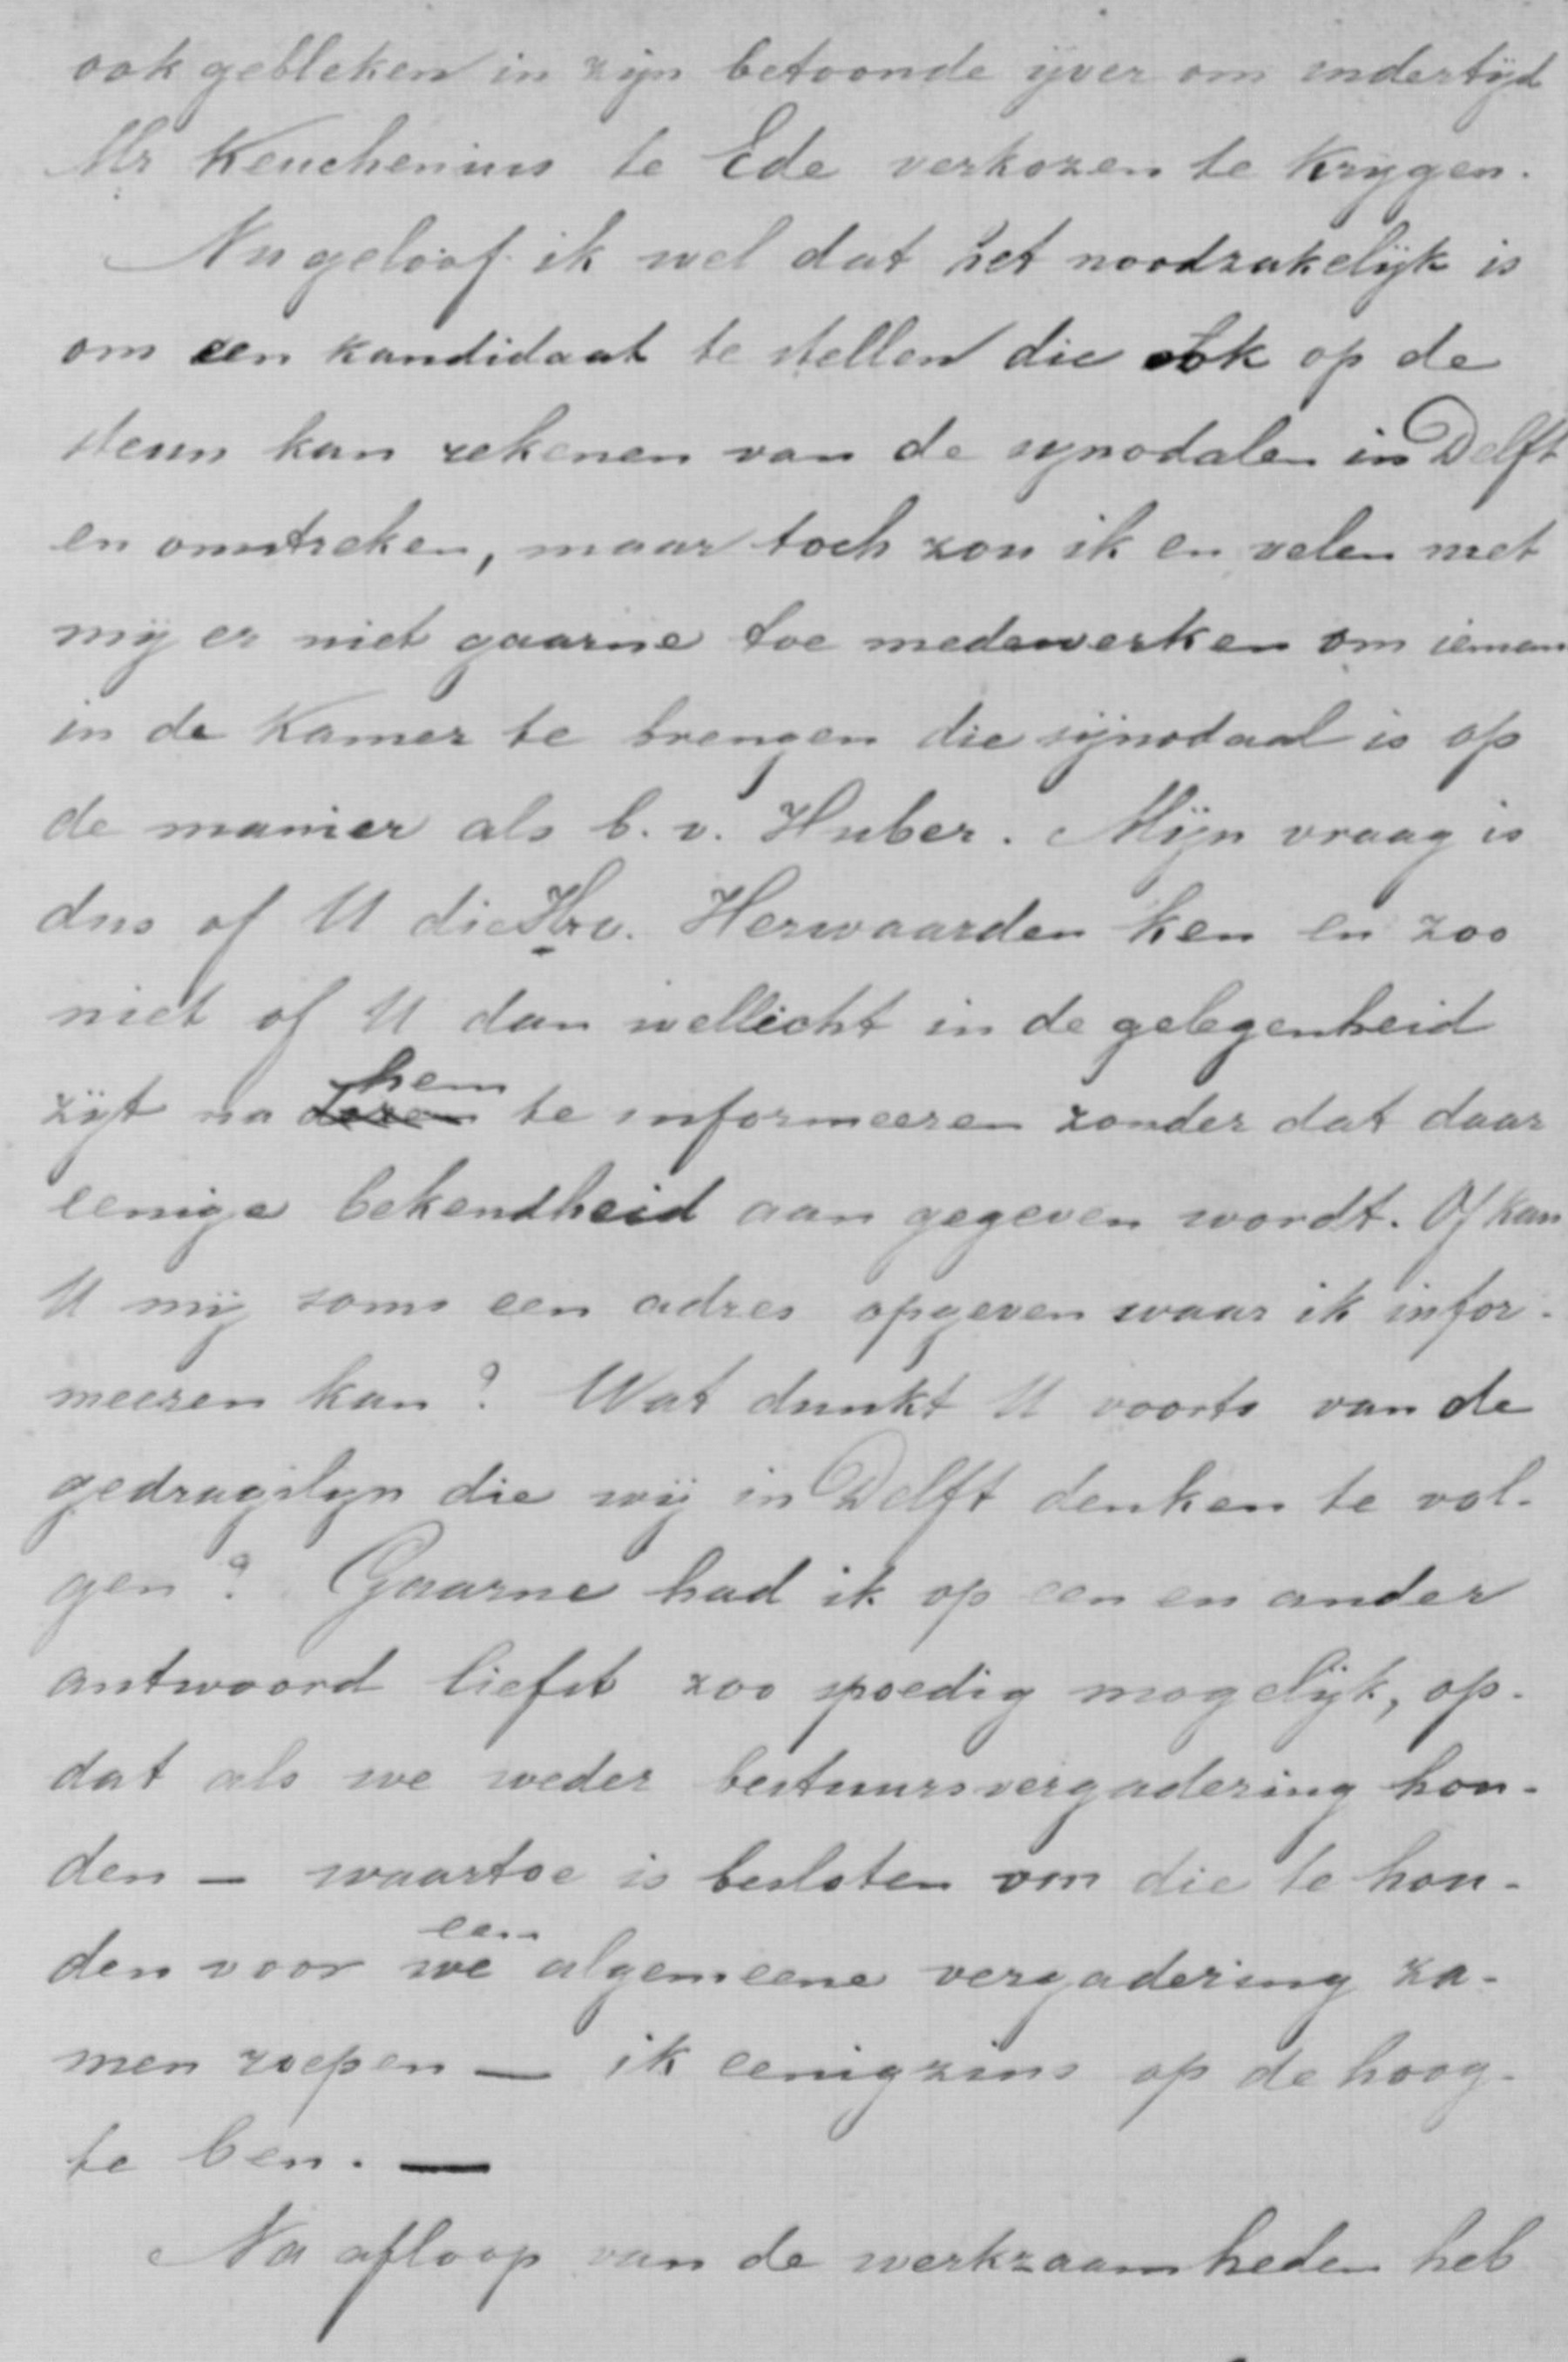 ook gebleken in zijn betoonde ijver om indertijd
Mr Keuchenius te Ede verkozen te krijgen.
Nu geloof ik wel dat het noodzakelijk is
om een kandidaat te stellen die ook op de
steun kan rekenen van de synodalen in Delft
en omstreken, maar toch zou ik en velen met
mij er niet gaarne toe medewerken om ieman
in de Kamer te brengen die synodaal is op
de manier als b.v. Huber. Mijn vraag is
dus of U die Hr v. Herwaarden ken en zoo
niet of U dan wellicht in de gelegenheid
zijt na hem te informeeren zonder dat daar
eenige bekendheid aan gegeven wordt. Of kan
U mij soms een adres opgeven waar ik infor-
meeren kan? Wat dunkt U voorts van de
gedragslijn die wij in Delft denken te vol-
gen? Gaarne had ik op een en ander
antwoord liefst zoo spoedig mogelijk, op-
dat als we weder bestuursvergadering hou-
den — waartoe is besloten om die te hou-
den voor we een algemeene vergadering za-
men roepen — ik eenigzins op de hoog-
te ben. —
Na afloop van de werkzaamheden heb